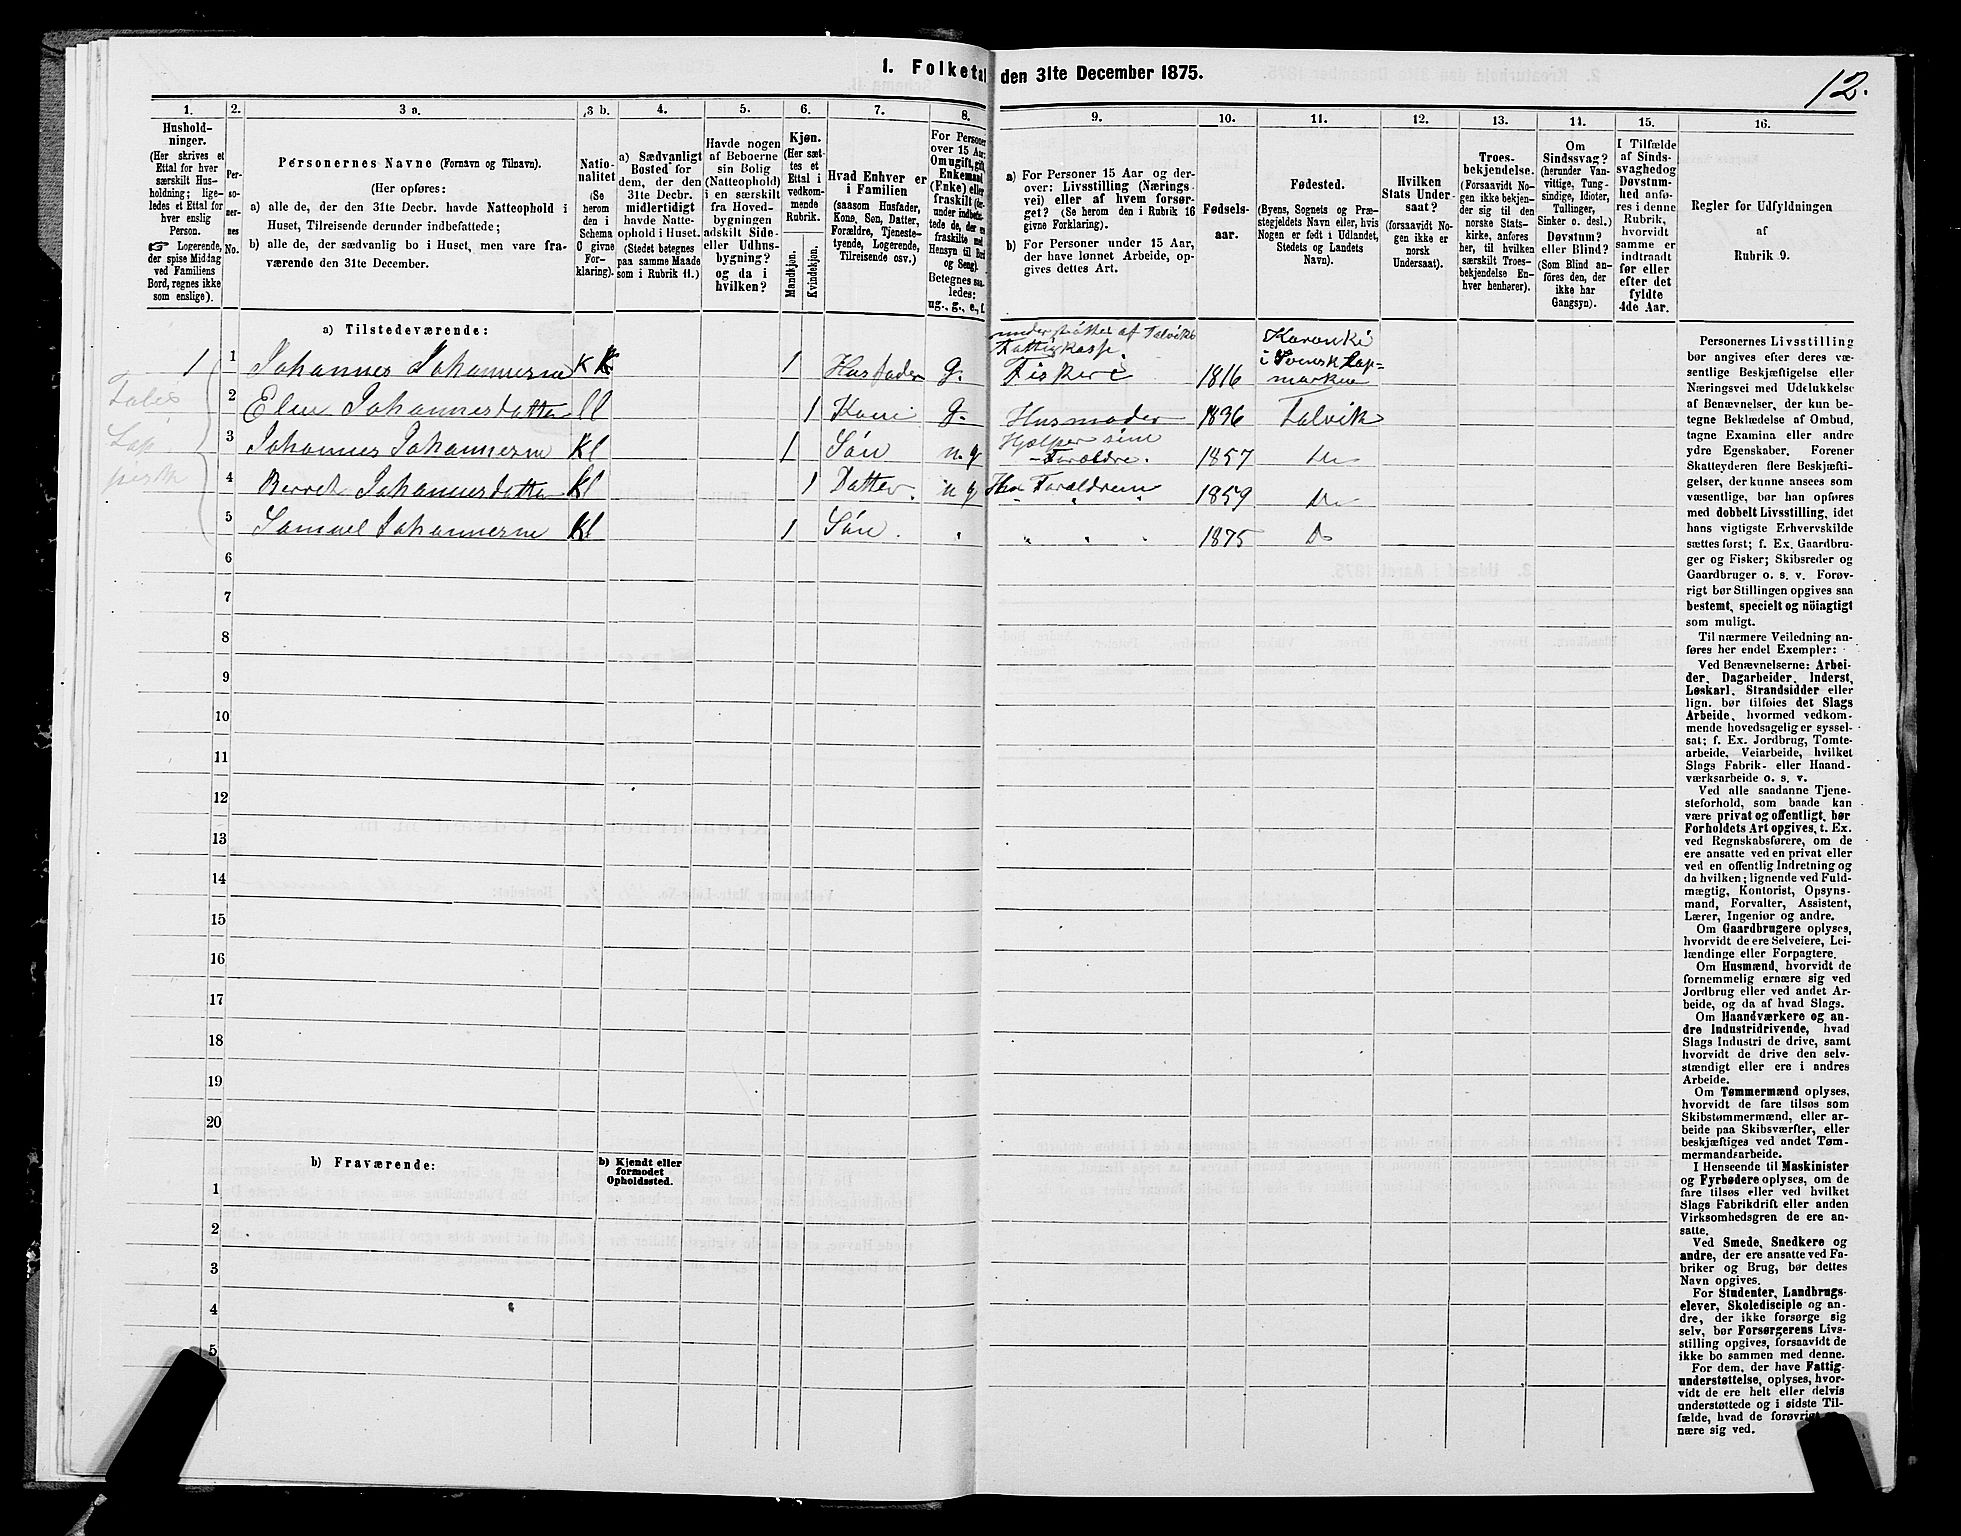 1. Folketal den 31te December 1875.
12.
1.
Hushold-
ninger.
(Her skrives et
Ettal for hver
særskilt Hus-
holdning; lige-
ledes et Ettal for
hver enslig
Person.
☞ Logerende,
der spise Middag
ved Familiens
Bord, regnes ikke
som enslige).
2.
Per-
so-
ner-
nes
No.
3 a.
Personernes Navne (Fornavn og Tilnavn).
(Her opføres:
a) alle de, der den 31te Decbr. havde Natteophold i
Huset, Tilreisende derunder indbefattede;
b) alle de, der sædvanlig bo i Huset, men vare fra-
værende den 31te December.
3 b.
Natio-
nalitet
(Se
herom
den i
Schema
0 givne
For-
klaring).
4.
a) Sædvanligt
Bosted for
dem, der den
31te Decbr.
midlertidigt
havde Natte-
ophold i Huset.
(Stedet betegnes
paa samme Maade
som i Rubrik 11.)
5.
Havde nogen
af Beboerne
sin Bolig
(Natteophold)
i en særskilt
fra Hoved-
bygningen
adskilt Side-
eller Udhus-
bygning?
og da i
hvilken?
6.
Kjøn.
(Her sæt-
tes et
Ettal i
vedkom-
mende
Rubrik.
Mandkjøn.
Kvindekjøn.
7.
Hvad Enhver er
i Familien
(saasom Husfader,
Kone, Søn, Datter,
Forældre, Tjeneste-
tyende, Logerende,
Tilreisende osv.)
8.
For Personer
over 15 Aar:
Om ugift, gift,
Enkemand
(Enke) eller
fraskilt (der-
under indbefat-
tede de, der ere
fraskilte med
Hensyn til Bord
og Seng).
Betegnes saa-
ledes:
ug., g., e., f.
9.
a) For Personer 15 Aar og der-
over: Livsstilling (Nærings-
vei) eller af hvem forsør-
get? (Se herom den i Rubrik 16
givne Forklaring).
b) For Personer under 15 Aar,
der have lønnet Arbeide, op-
gives dettes Art.
10.
Fødsels-
aar.
11.
Fødested.
(Byens, Sognets og Præ-
stegjeldets Navn eller, hvis
Nogen er født i Udlandet,
Stedets og Landets
Navn).
12.
Hvilken
Stats Under-
saat?
(forsaavidt No-
gen ikke er
norsk
Undersaat).
13.
Troes-
bekjendelse.
(Forsaavidt No-
gen ikke bekjen-
der sig til den
norske Stats-
kirke, anføres
her, til hvilken
særskilt Troes-
bekjendelse En-
hver henhører).
14.
Om
Sindssvag?
(herunder Van-
vittige, Tung-
sindige, Idioter,
Tullinger,
Sinker o. desl.)
Døvstum?
eller Blind?
(Som Blind an-
føres den, der
ikke har
Gangsyn).
15.
I Tilfælde
af Sinds-
svaghedog
Døvstum-
hed anfø-
res i denne
Rubrik,
hvorvidt
samme er
indtraadt
før eller
efter det
fyldte
4de Aar.
16.
Regler for Udfyldningen
af
Rubrik 9.
a) Tilstedeværende:
1 1 Johannes Johannesen K 1 Husfader g. understøttet af Talviks Fattigkasse. Fiskeri 1816 i Svensk Lap-
marken
2 Elen Johannesdatter ll 1 Kone g. Husmoder 1836 Talvik
3 Johannes Johannesen Kl 1 Søn u.g Hjælper sine Forældre. 1857 Do
4 Berret Johannesdatter Kl 1 Datter. u g Forældrene 1859 Do
5 Samuel Johannesen Kl 1 Søn. " " " " 1875 Do
6
7
8
9
10
11
12
13
14
15
16
17
18
19
20
b) Fraværende:
b) Kjendt eller
formodet
Opholdssted.
1
2
3
4
5
Personernes Livsstilling
bør angives efter deres væ-
sentlige Beskjæftigelse eller
Næringsvei med Udelukkelse
af Benævnelser, der kun be-
tegne Beklædelse af Ombud,
tagne Examina eller andre
ydre Egenskaber. Forener
Skatteyderen flere Beskjæfti-
gelser, der kunne ansees som
væsentlige, bør han opføres
med dobbelt Livsstilling, idet
hans vigtigste Erhvervskilde
sættes først; f. Ex. Gaardbru-
ger og Fisker; Skibsreder og
Gaardbruger o. s. v. Forøv-
rigt bør Stillingen opgives saa
bestemt, specielt og nøiagtigt
som muligt.
Til nærmere Veiledning an-
føres her endel Exempler:
Ved Benævnelserne: Arbei-
der, Dagarbeider, Inderst,
Løskarl, Strandsidder eller
lign. bør tilføies det Slags
Arbeide, hvormed vedkom-
mende hovedsagelig er syssel-
sat; f. Ex. Jordbrug, Tomte-
arbeide, Veiarbeide, hvilket
Slags Fabrik- eller Haand-
værksarbeide o. s. v.
Ved alle saadanne Tjene-
steforhold, som baade kan
være privat og offentligt, bør
Forholdets Art opgives, t. Ex.
ved Regnskabsførere, om de
ere ansatte ved en privat eller
ved en offentlig Indretning og
da hvilken; lignende ved Fuld-
mægtig, Kontorist, Opsyns-
mand, Forvalter, Assistent,
Lærer, Ingeniør og andre.
Om Gaardbrugere oplyses,
hvorvidt de ere Selveiere, Lei-
lændinge eller Forpagtere.
Om Husmænd, hvorvidt de
fornemmelig ernære sig ved
Jordbrug eller ved andet Ar-
beide, og da af hvad Slags.
Om Haandværkere og an-
dre Industridrivende, hvad
Slags Industri de drive, samt
hvorvidt de drive den selv-
stændigt eller ere i andres
Arbeide.
Om Tømmermænd oplyses,
hvorvidt de fare tilsøs som
Skibstømmermænd, eller ar-
beide paa Skibsværfter, eller
beskjæftiges ved andet Tøm-
mermandsarbeide.
I Henseende til Maskinister
og Fyrbødere oplyses, om de
fare tilsøs eller ved hvilket
Slags Fabrikdrift eller anden
Virksomhedsgren de ere an-
satte.
Ved Smede, Snedkere og
andre, der ere ansatte ved Fa-
briker og Brug, bør dettes
Navn opgives.
For Studenter, Landbrugs-
elever, Skoledisciple og an-
dre, der ikke forsørge sig
selv, bør Forsørgerens Livs-
stilling opgives, forsaavidt de
ikke bo sammen med denne.
For dem, der have Fattig-
understøttelse, oplyses, hvor-
vidt de ere helt eller delvis
understøttede og i sidste Til-
fælde, hvad de forøvrigt
nære sig ved.